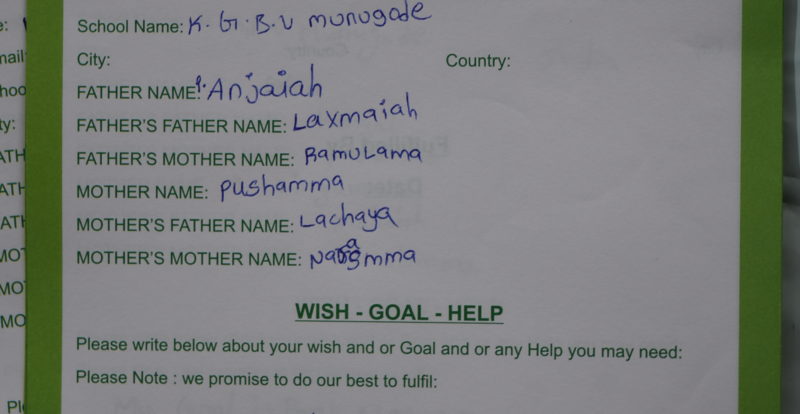 School Name: K. G. B. V munugode
City: Country:
FATHER NAME: Anjaiah
FATHER'S FATHER NAME: Laxmaiah
FATHER'S MOTHER NAME: Ramulama
MOTHER NAME: pushamma
MOTHER'S FATHER NAME: Lachaya
MOTHER'S MOTHER NAME:
WISH - GOAL - HELP
Please write below about your wish and or Goal and or any Help you may need:
Please Note : we promise to do our best to fulfil: